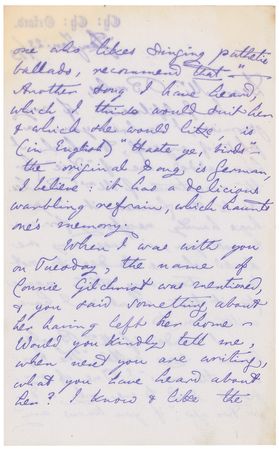 one who likes singing pathetic
ballads, recommend that."
Another song I have heard,
which I think would suit her
& which she would like is
(in English) "Haste ye, birds" —
the original song is German,
I believe: it has a delicious
warbling refrain, which haunts
one's memory.
When I was with you
on Tuesday, the name of
Connie Gilchrist was mentioned,
& you said something about
her having left her home —
Would you kindly tell me,
when next you are writing,
what you have heard about
her? I know & like the